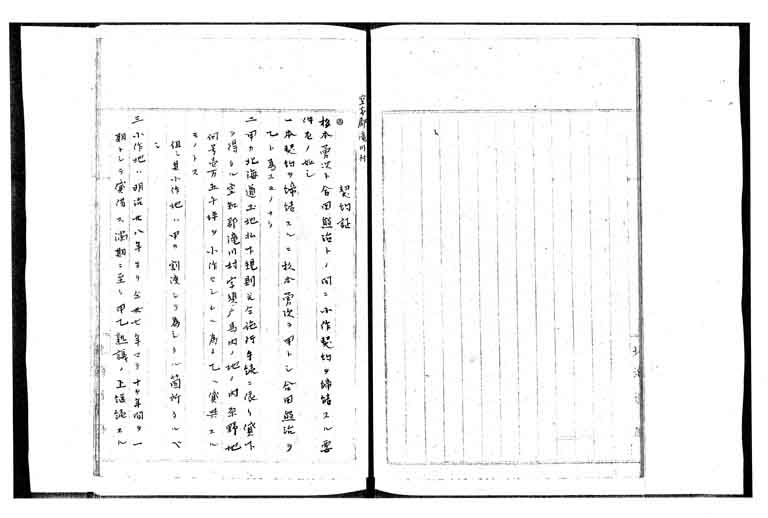 空知郡滝川村
契約証
松本勇次ト合田熊治トノ間ニ小作契約ヲ締結スル要
件左ノ如シ
一本契約ヲ締結スルニ松本勇次ヲ甲トシ合田熊治ヲ
乙ト為スモノナリ
二甲カ北海道土地払下規則 施行手続ニ依リ貸下
ヲ得タル空知郡滝川村字 内ノ地ノ内 野地
何号壱万五千坪ヲ小作セシムル為メ乙ヘ貸共スル
モノトス
但シ其小作地ハ甲カ割渡シヲ為シタル箇所タルヘ
シ
三小作地ハ明治廿八年ヨリ仝卅七年マテ十ケ年間ヲ一
期トシテ貸借ス満期ニ至リ甲乙熟議ノ上 スル